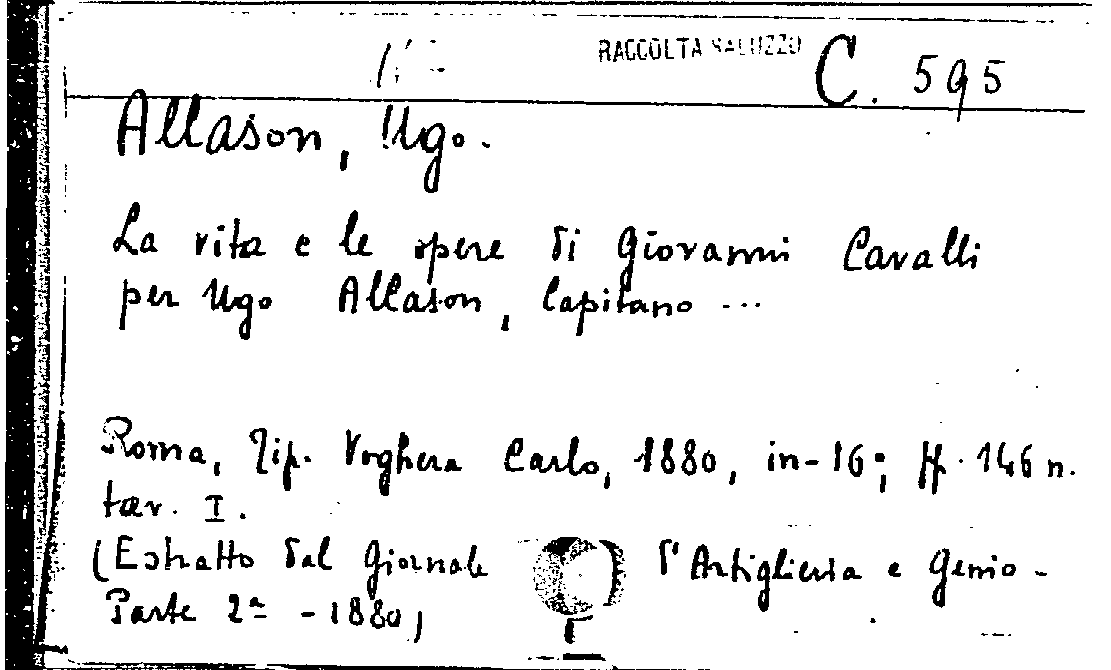 RACCOLTA SALUZZO C. 595
Allason, Ugo.
La vita e le opere di Giovanni Cavalli
per Ugo Allason, Capitano ...
Roma, Tip. Voghera Carlo, 1880, in-16°; pp. 146 n.
tav. I.
(Estratto dal Giornale d'Artiglieria e Genio -
Parte 2ª - 1880)